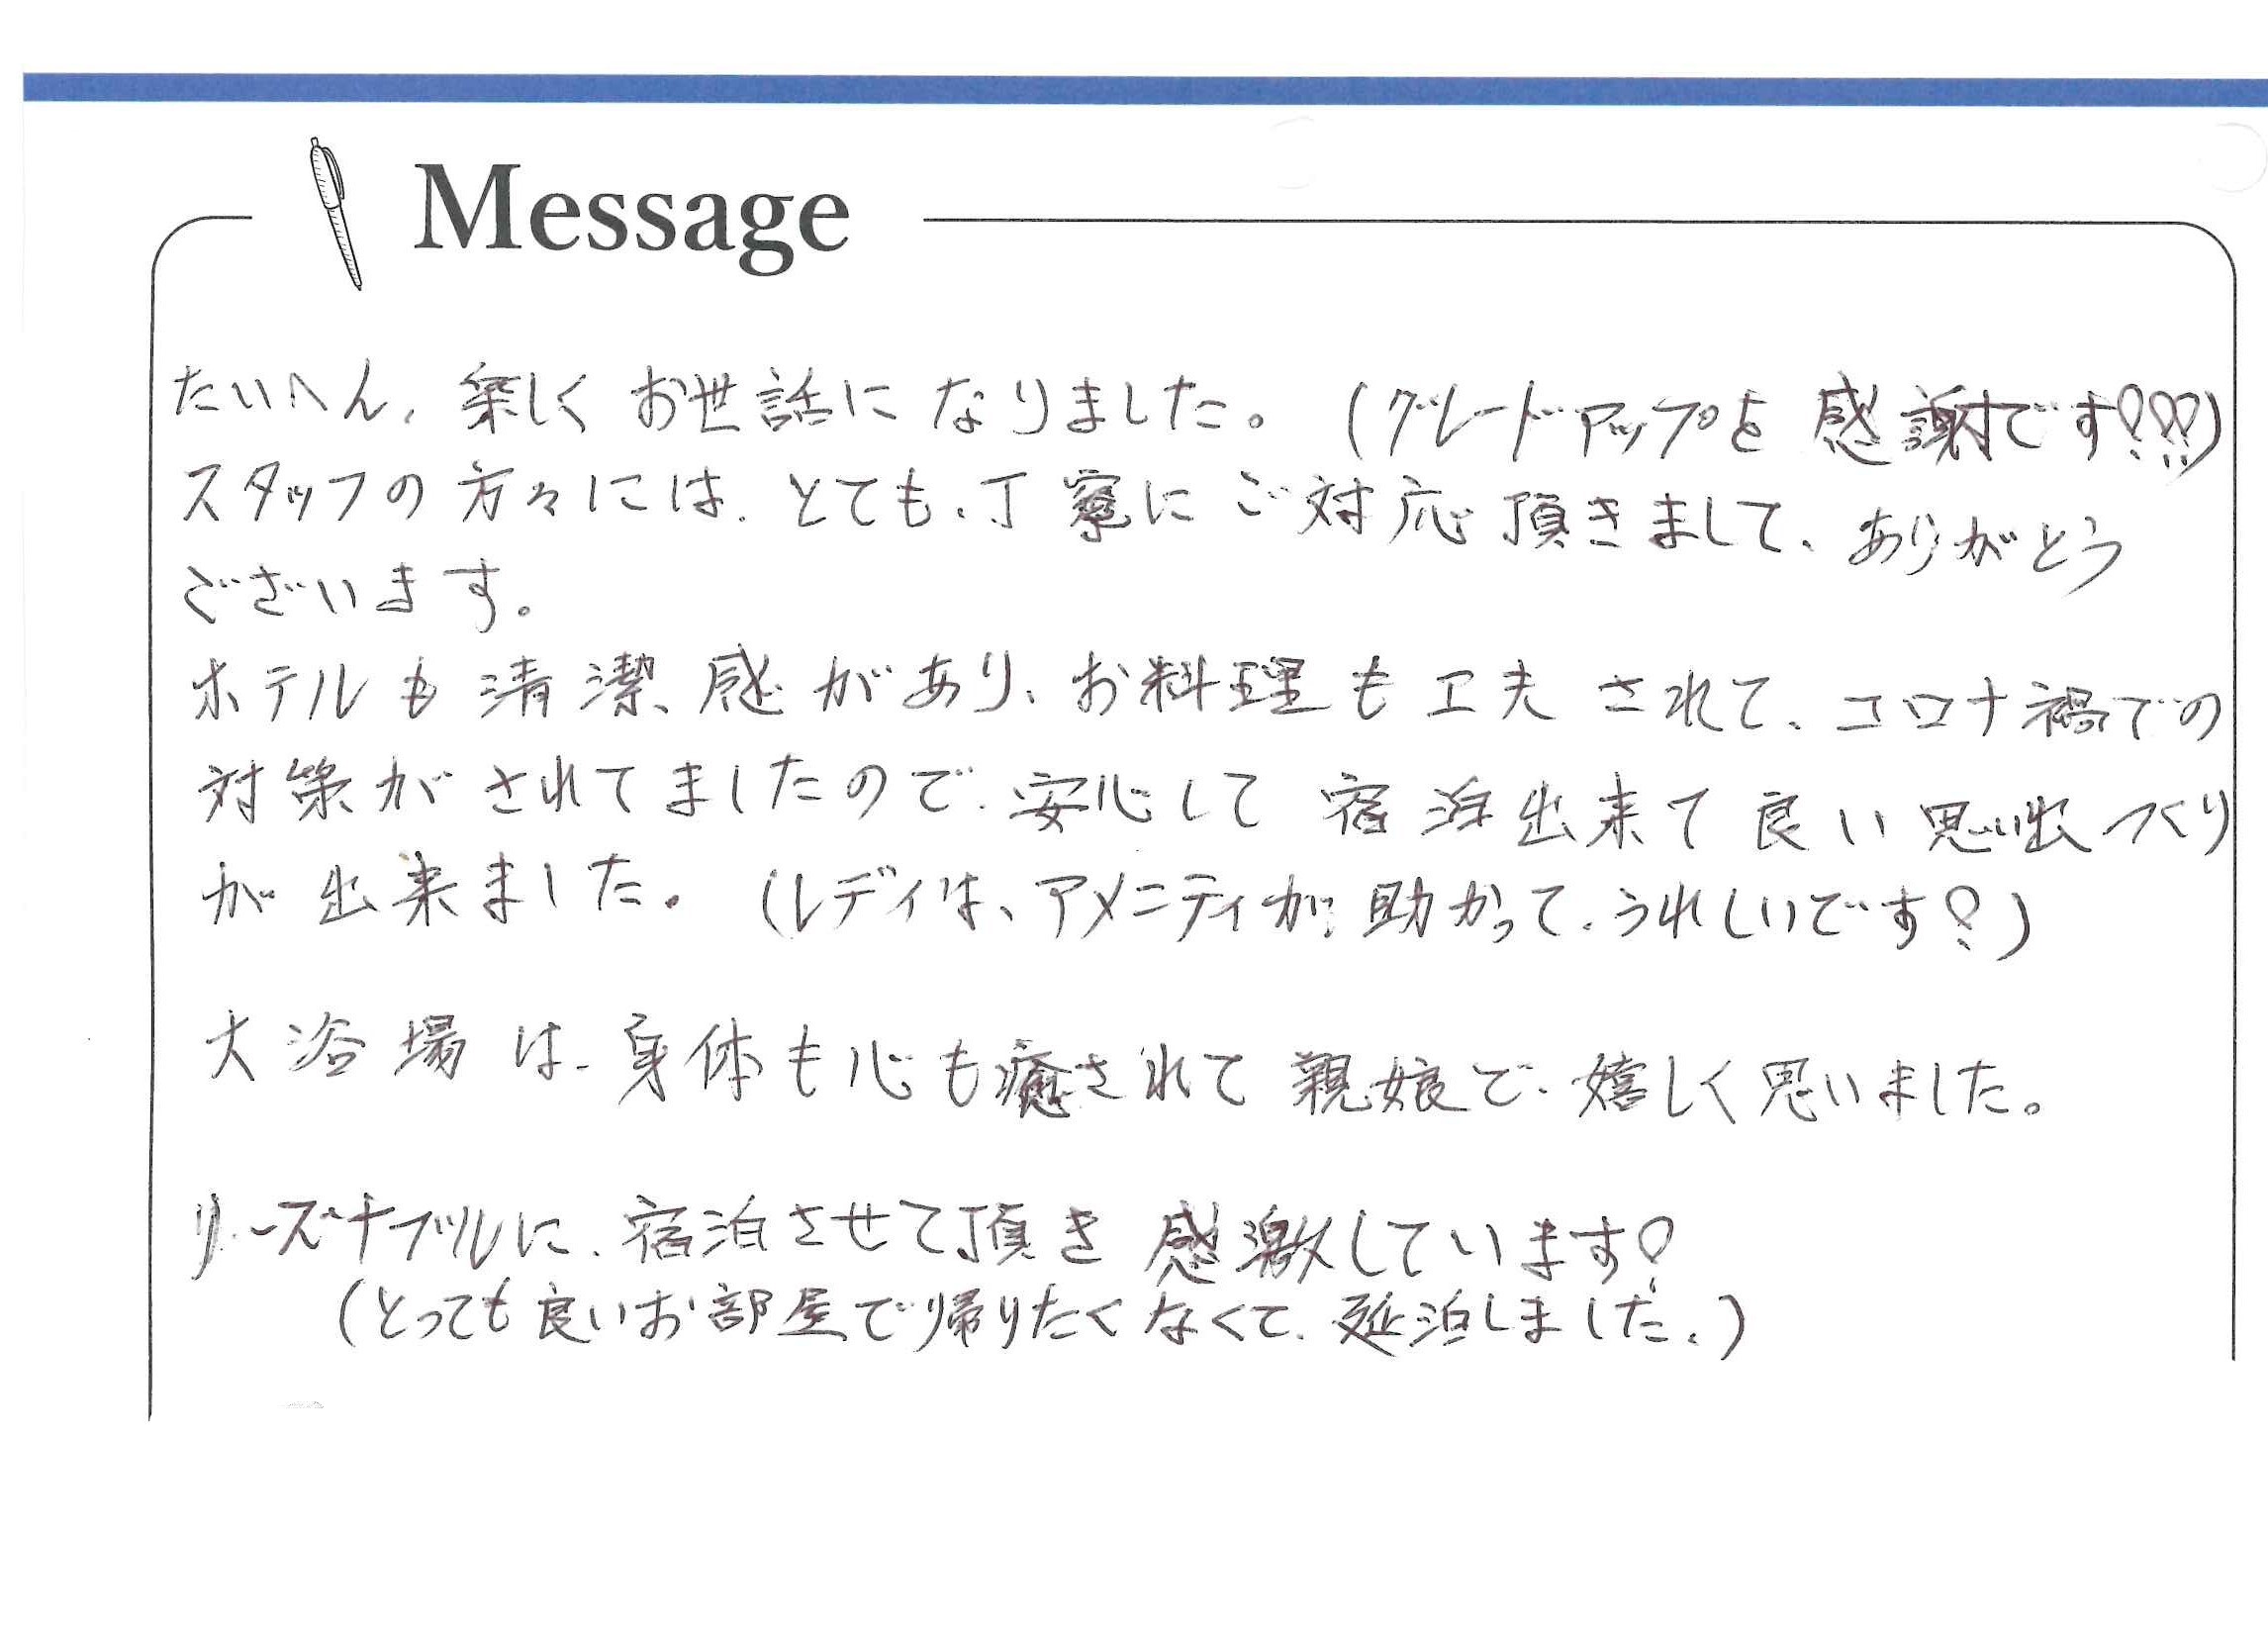 Message
たいへん、楽しくお世話になりました。(グレードアップを感謝です!!!)
スタッフの方々には、とても、丁寧にご対応頂きまして、ありがとう
ございます。
ホテルも清潔感があり、お料理も工夫されて、コロナ禍での
対策がされてましたので、安心して宿泊出来て良い思い出つくり
が出来ました。(レディは、アメニティが助かって、うれしいです!)
大浴場は、身体も心も癒されて親娘で、嬉しく思いました。
リーズナブルに、宿泊させて頂き感激しています!
(とっても良いお部屋で帰りたくなくて、延泊しました。)